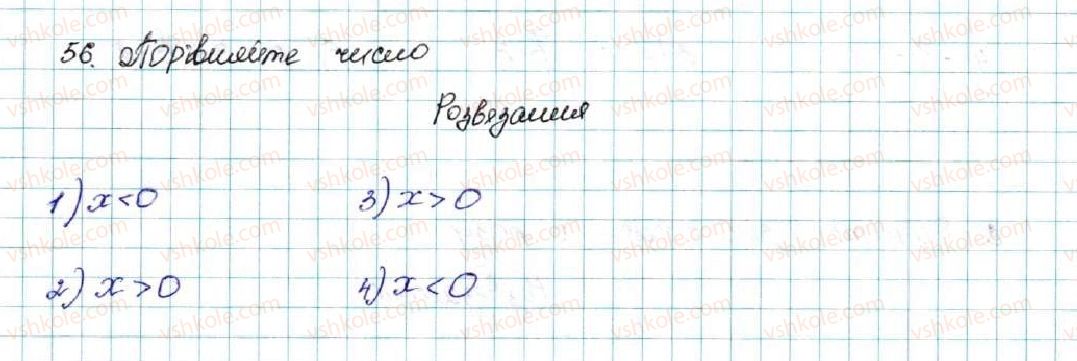 56. Порівняйте число
Розвязання
1) x < 0
3) x > 0
2) x > 0
4) x < 0